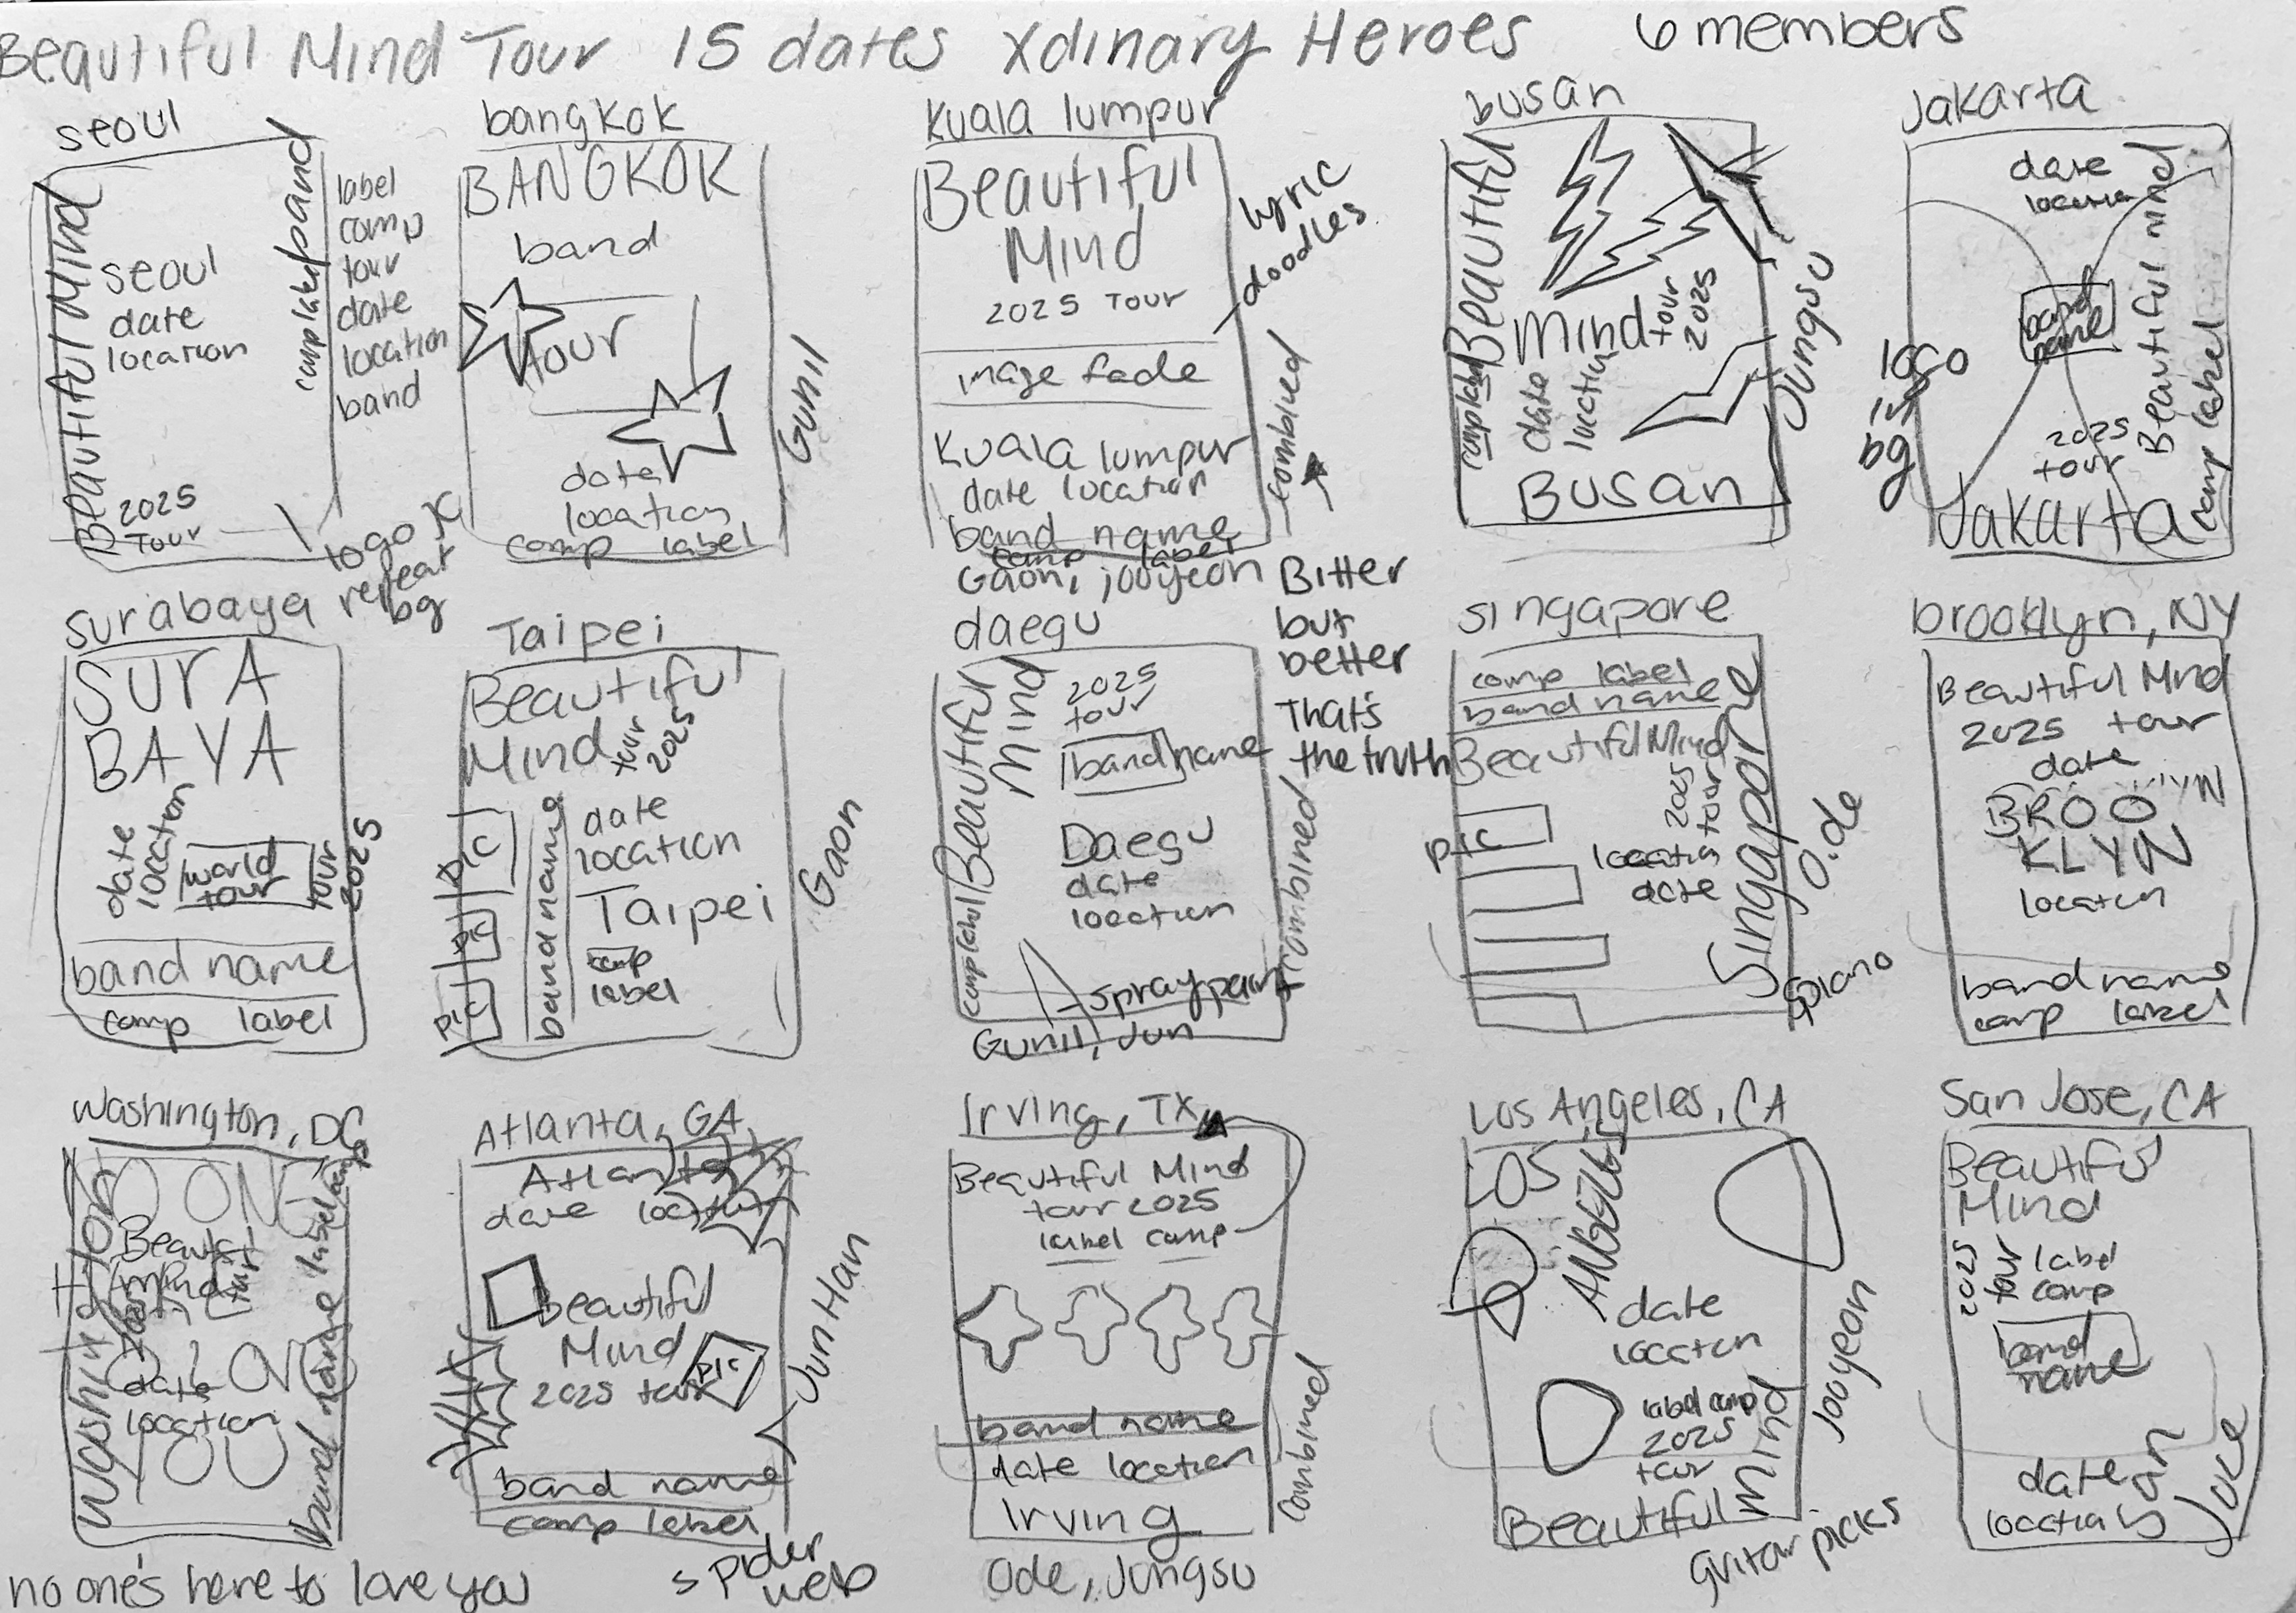 Beautiful Mind Tour 15 dates Xdinary Heroes 6 members
seoul
Beautiful Mind
seoul
date
location
2025
Tour
comp label band
label
comp
tour
date
location
band
logo X
repeat
bg
bangkok
BANGKOK
band
tour
date
location
comp label
Gunil
Kuala lumpur
Beautiful
Mind
2025 Tour
image fade
Kuala lumpur
date location
band name
comp label
lyric
doodles
combined
Gaon, jooyeon
busan
Beautiful
Mind
tour
2025
comp label
date
location
Busan
Jungsu
Jakarta
date
location
band
name
Beautiful mind
2025
tour
Jakarta
comp label
logo
in
bg
surabaya
SURA
BAYA
date
location
world
tour
tour
2025
band name
comp label
Taipei
Beautiful
Mind
tour
2025
pic
pic
pic
band name
date
location
Taipei
comp
label
Gaon
daegu
Beautiful
Mind
2025
tour
band name
Daegu
date
location
comp label
spray paint
Gunil, Jun
combined
Bitter
but
better
That's
the truth
singapore
comp label
band name
Beautiful Mind
2025
tour
pic
location
date
Singapore
O.de
piano
brooklyn, NY
Beautiful Mind
2025 tour
date
BROO
KLYN
location
band name
comp label
Washington, DC
NO ONE
Beautiful
mind
tour
date
location
YOU
Washington
band name label comp
no one's here to love you
Atlanta, GA
Atlanta
date location
Beautiful
Mind
2025 tour
pic
band name
comp label
Jun Han
spider
web
Irving, TX
Beautiful Mind
tour 2025
label comp
band name
date location
Irving
combined
Ode, Jungsu
Los Angeles, CA
LOS
ANGELES
date
location
label comp
2025
tour
Beautiful
Mind
Jooyeon
guitar picks
San Jose, CA
Beautiful
Mind
2025
tour
label
comp
band
name
date
location
San
Jose